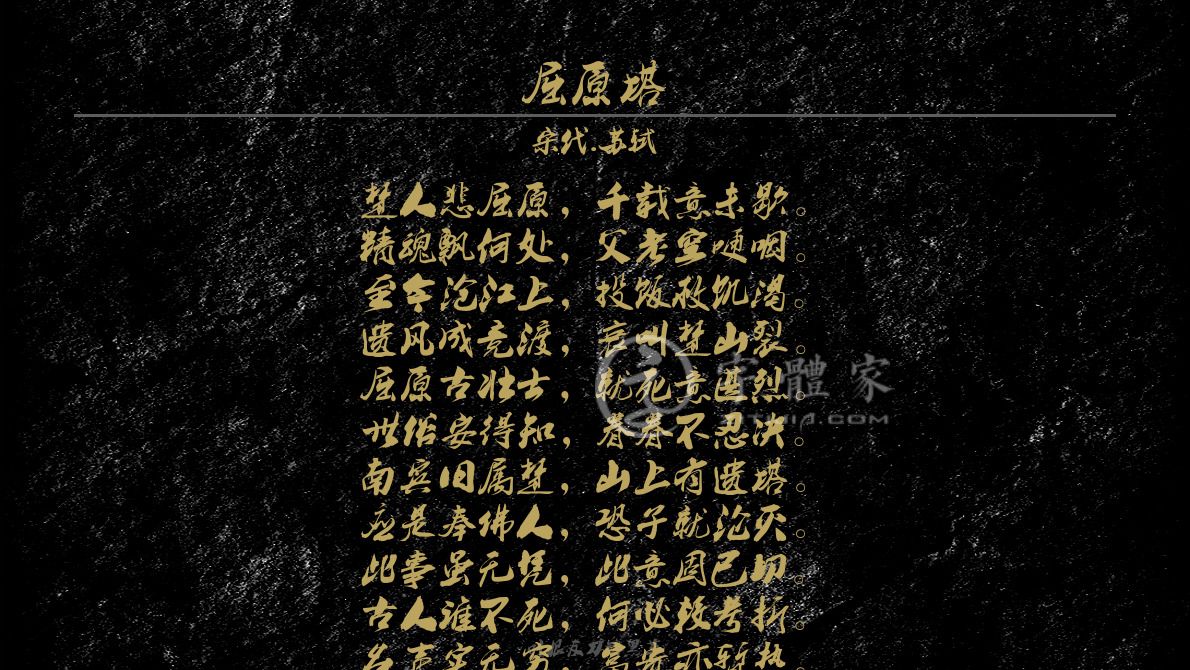 屈原塔
宋代.苏轼
楚人悲屈原，千载意未歇。
精魂飘何处，父老空哽咽。
至今沧江上，投饭救饥渴。
遗风成竞渡，哀叫楚山裂。
屈原古壮士，就死意甚烈。
世俗安得知，眷眷不忍决。
南宾旧属楚，山上有遗塔。
应是奉佛人，恐子就沦灭。
此事虽无凭，此意固已切。
古人谁不死，何必较考折。
名声实无穷，富贵亦暂热。
字體家